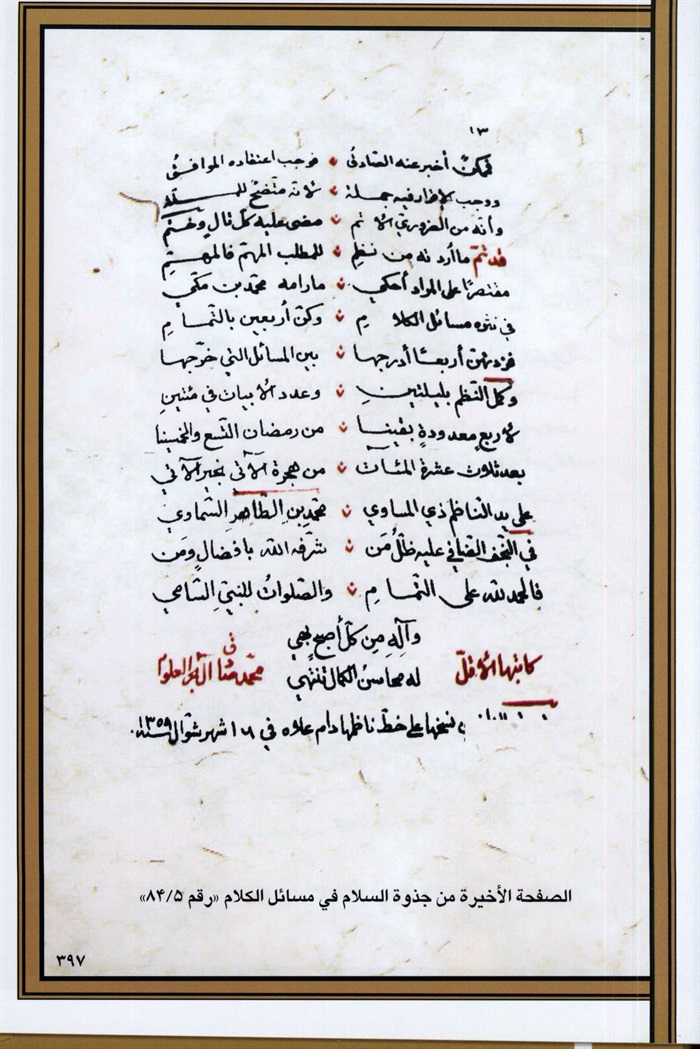 ١٣
فممكن أخبر عنه الصادق ∴ فوجب اعتقاده الموافق
ووجب الإقرار فيه جملة ∴ لأنه متضح للمسلة
وأنه من الضروري الأتم ∴ مضى عليه كل تال وختم
قد تم ما أردته من نظم ∴ للمطلب المهتم فالمهتم
مقتصرًا على المواد أحكي ∴ مارامه محمد بن مكي
في نثره مسائل الكلام ∴ وكن أربعين بالتمام
فزدتهن أربعًا أدرجها ∴ بين المسائل التي خرجها
وكمل النظم بليلتين ∴ وعدد الأبيات في مئتين
لأربع معدودة يقينا ∴ من رمضان التسع والخمسينا
بعد ثلاث عشرة المئات ∴ من هجرة الآتي بخير الآتي
على يد الناظم ذي المساوي ∴ محمد بن الطاهر السماوي
في النجف الضافي عليه ظل من ∴ شرفه الله بافضال ومن
فالحمد لله على التمام ∴ والصلوات للنبي السامي
وآله من كل أصبح بهي
له محاسن الكمال تنتهي
كاتبها الأقل
محمد صادق آل بحر العلوم
نسخها على خط ناظمها دام علاه في ١٦ شهر شوال سنة ١٣٥٩
الصفحة الأخيرة من جذوة السلام في مسائل الكلام «رقم ٨۴/۵»
٣٩٧